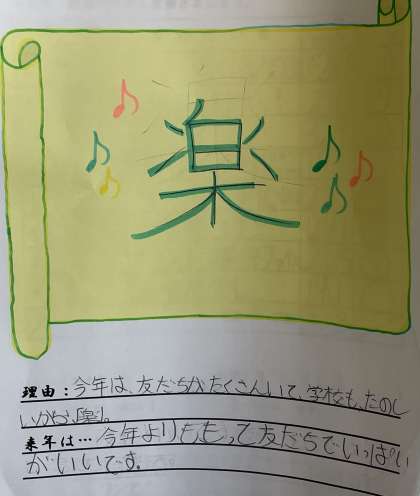 楽
理由：今年は、友だちがたくさんいて、学校も、たのし
いから、楽り。
来年は…今年よりももって友だちでいっぱい
がいいです。